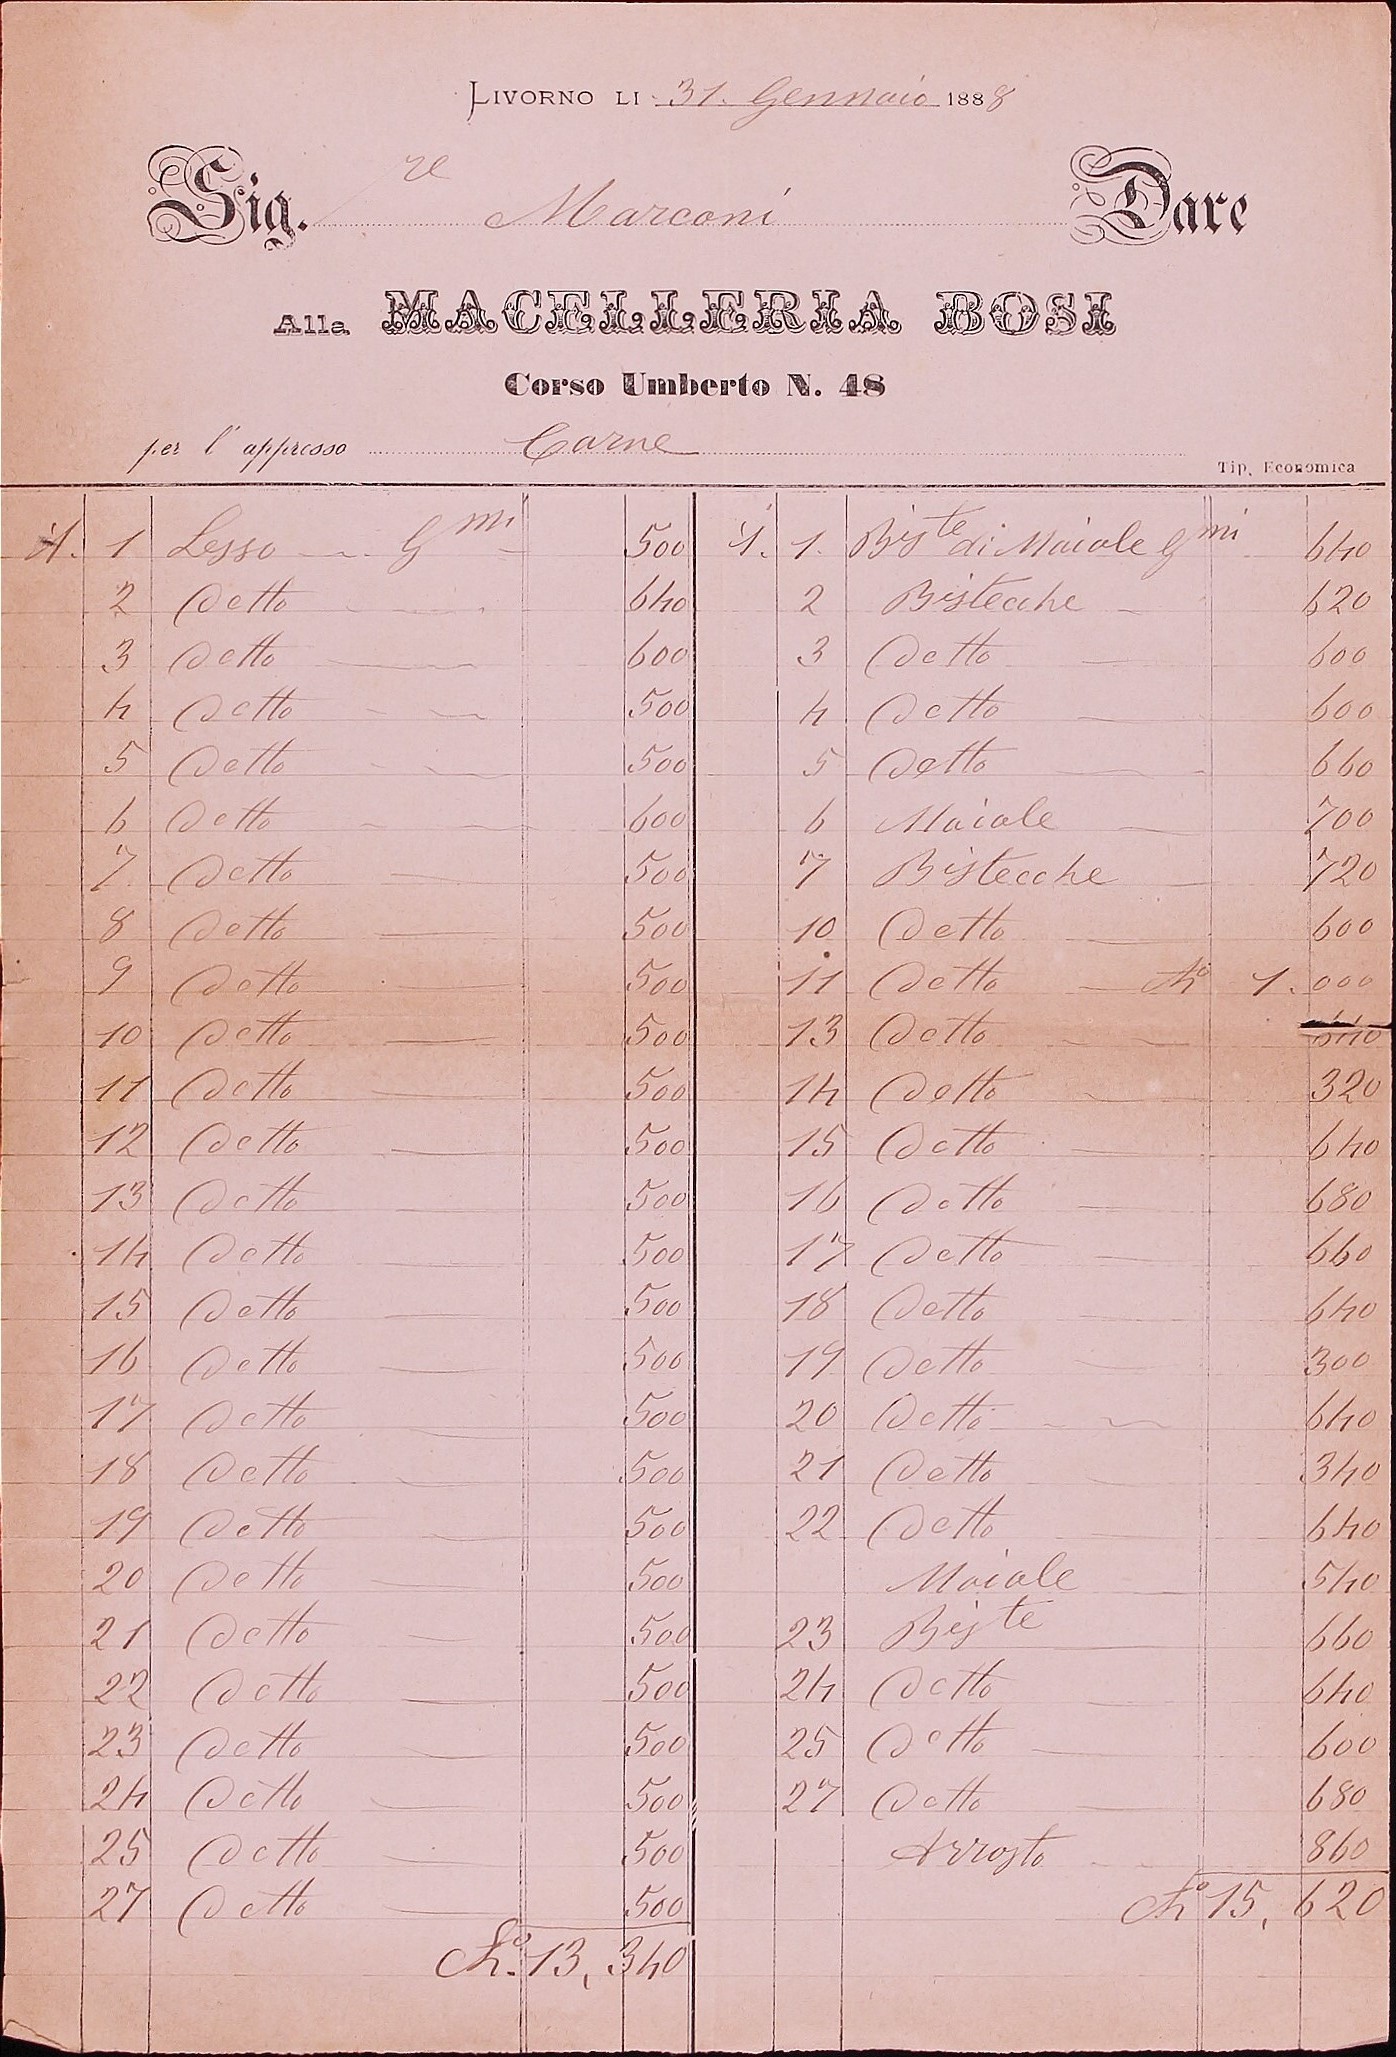 Livorno li 31. Gennaio 1888
Sig.re Marconi Dare
Alla MACELLERIA BOSI
Corso Umberto N. 48
per l'appresso Carne
Tip. Economica
1 Lesso Gmi 500
2 Detto 640
3 Detto 600
4 Detto 500
5 Detto 500
6 Detto 600
7 Detto 500
8 Detto 500
9 Detto 500
10 Detto 500
11 Detto 500
12 Detto 500
13 Detto 500
14 Detto 500
15 Detto 500
16 Detto 500
17 Detto 500
18 Detto 500
19 Detto 500
20 Detto 500
21 Detto 500
22 Detto 500
23 Detto 500
24 Detto 500
25 Detto 500
27 Detto 500
Ch.º 13,340
1. Biste di Maiale Gmi 640
2 Bistecche 620
3 Detto 600
4 Detto 600
5 Detto 660
6 Maiale 700
7 Bistecche 720
10 Detto 600
11 Detto Chº 1.000
13 Detto 640
14 Detto 320
15 Detto 640
16 Detto 680
17 Detto 660
18 Detto 640
19 Detto 300
20 Detto 640
21 Detto 340
22 Detto 640
Maiale 540
23 Biste 660
24 Detto 640
25 Detto 600
27 Detto 680
Arrosto 860
Chº 15,620